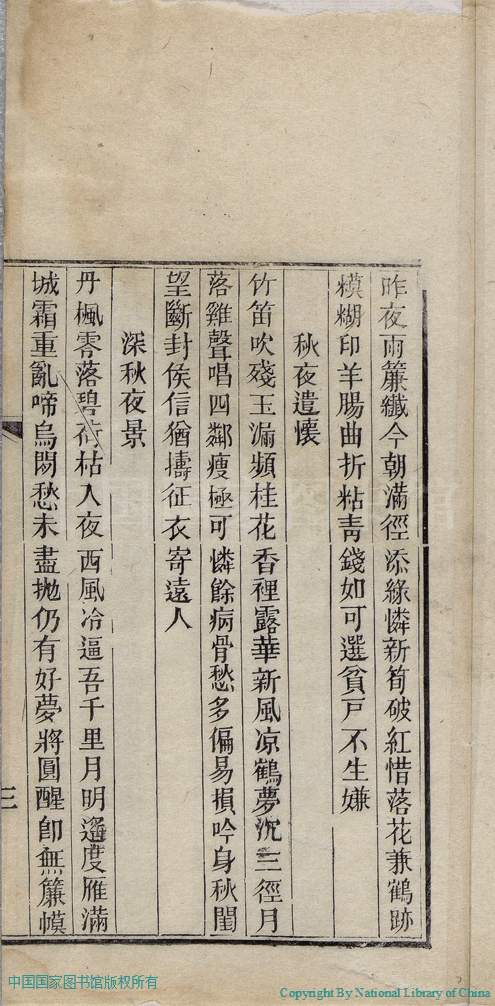 昨夜雨簾纖今朝滿徑添綠憐新筍破紅惜落花兼鶴跡
糢糊印羊腸曲折粘青錢如可選貧戶不生嫌
秋夜遣懷
竹笛吹殘玉漏頻桂花香裡露華新風凉鶴夢沉三徑月
落雞聲唱四鄰瘦極可憐餘病骨愁多偏易損吟身秋閨
望斷封侯信猶擣征衣寄遠人
深秋夜景
丹楓零落碧荷枯入夜西風冷逼吾千里月明遙度雁滿
城霜重亂啼烏閟愁未盡拋仍有好夢將圓醒卽無簾幙
三
中国国家图书馆版权所有
Copyright By National Library of China